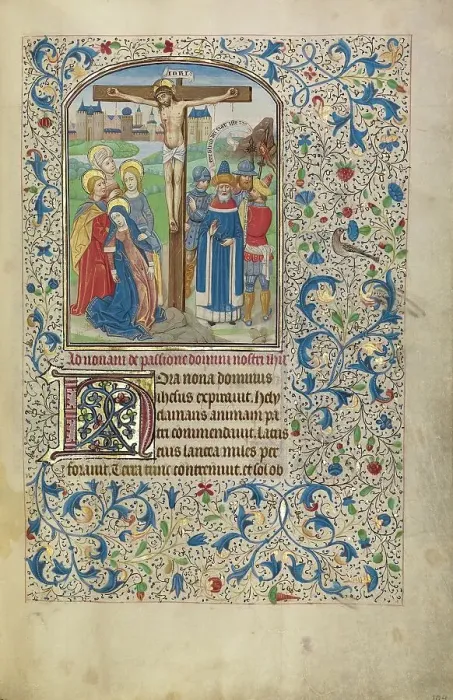 INRI
Ad nonam de passione domini nostri ihu
Hora nona dominus
ihesus expirauit. Hely
clamans animam pa
tri commendauit. Latus
eius lancea miles per
forauit. Terra tunc contremuit. et sol ob